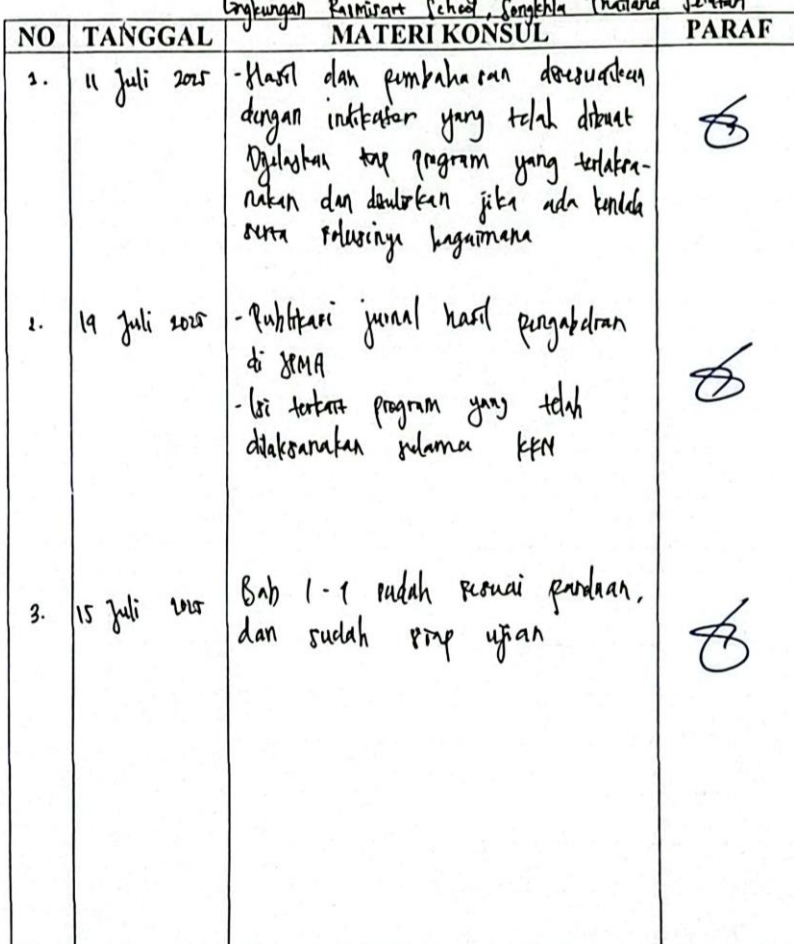 Lingkungan Rasmisart School, Songkhla Thailand Selatan
NO TANGGAL MATERI KONSUL PARAF
1. 11 Juli 2025 - Hasil dan pembahasan disesuaikan
dengan indikator yang telah dibuat
Dijelaskan tiap program yang terlaksa-
nakan dan dituliskan jika ada kendala
serta solusinya bagaimana
2. 14 Juli 2025 - Publikasi jurnal hasil pengabdian
di
- Isi terkait program yang telah
dilaksanakan selama KKN
3. 15 Juli 2025 Bab 1 - sudah sesuai panduan,
dan sudah siap ujian